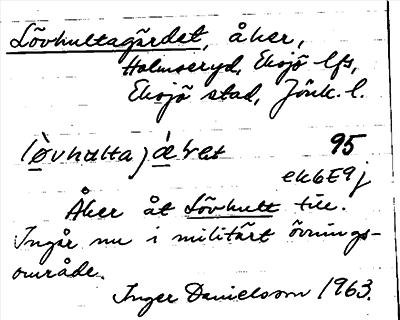 Lövhultagärdet, åker,
Holmseryd, Eksjö lfs,
Eksjö stad, Jönk. l.
95
ek6E9j
Åker åt Lövhult till.
Ingår nu i militärt övnings-
område.
Inger Danielsson 1963.